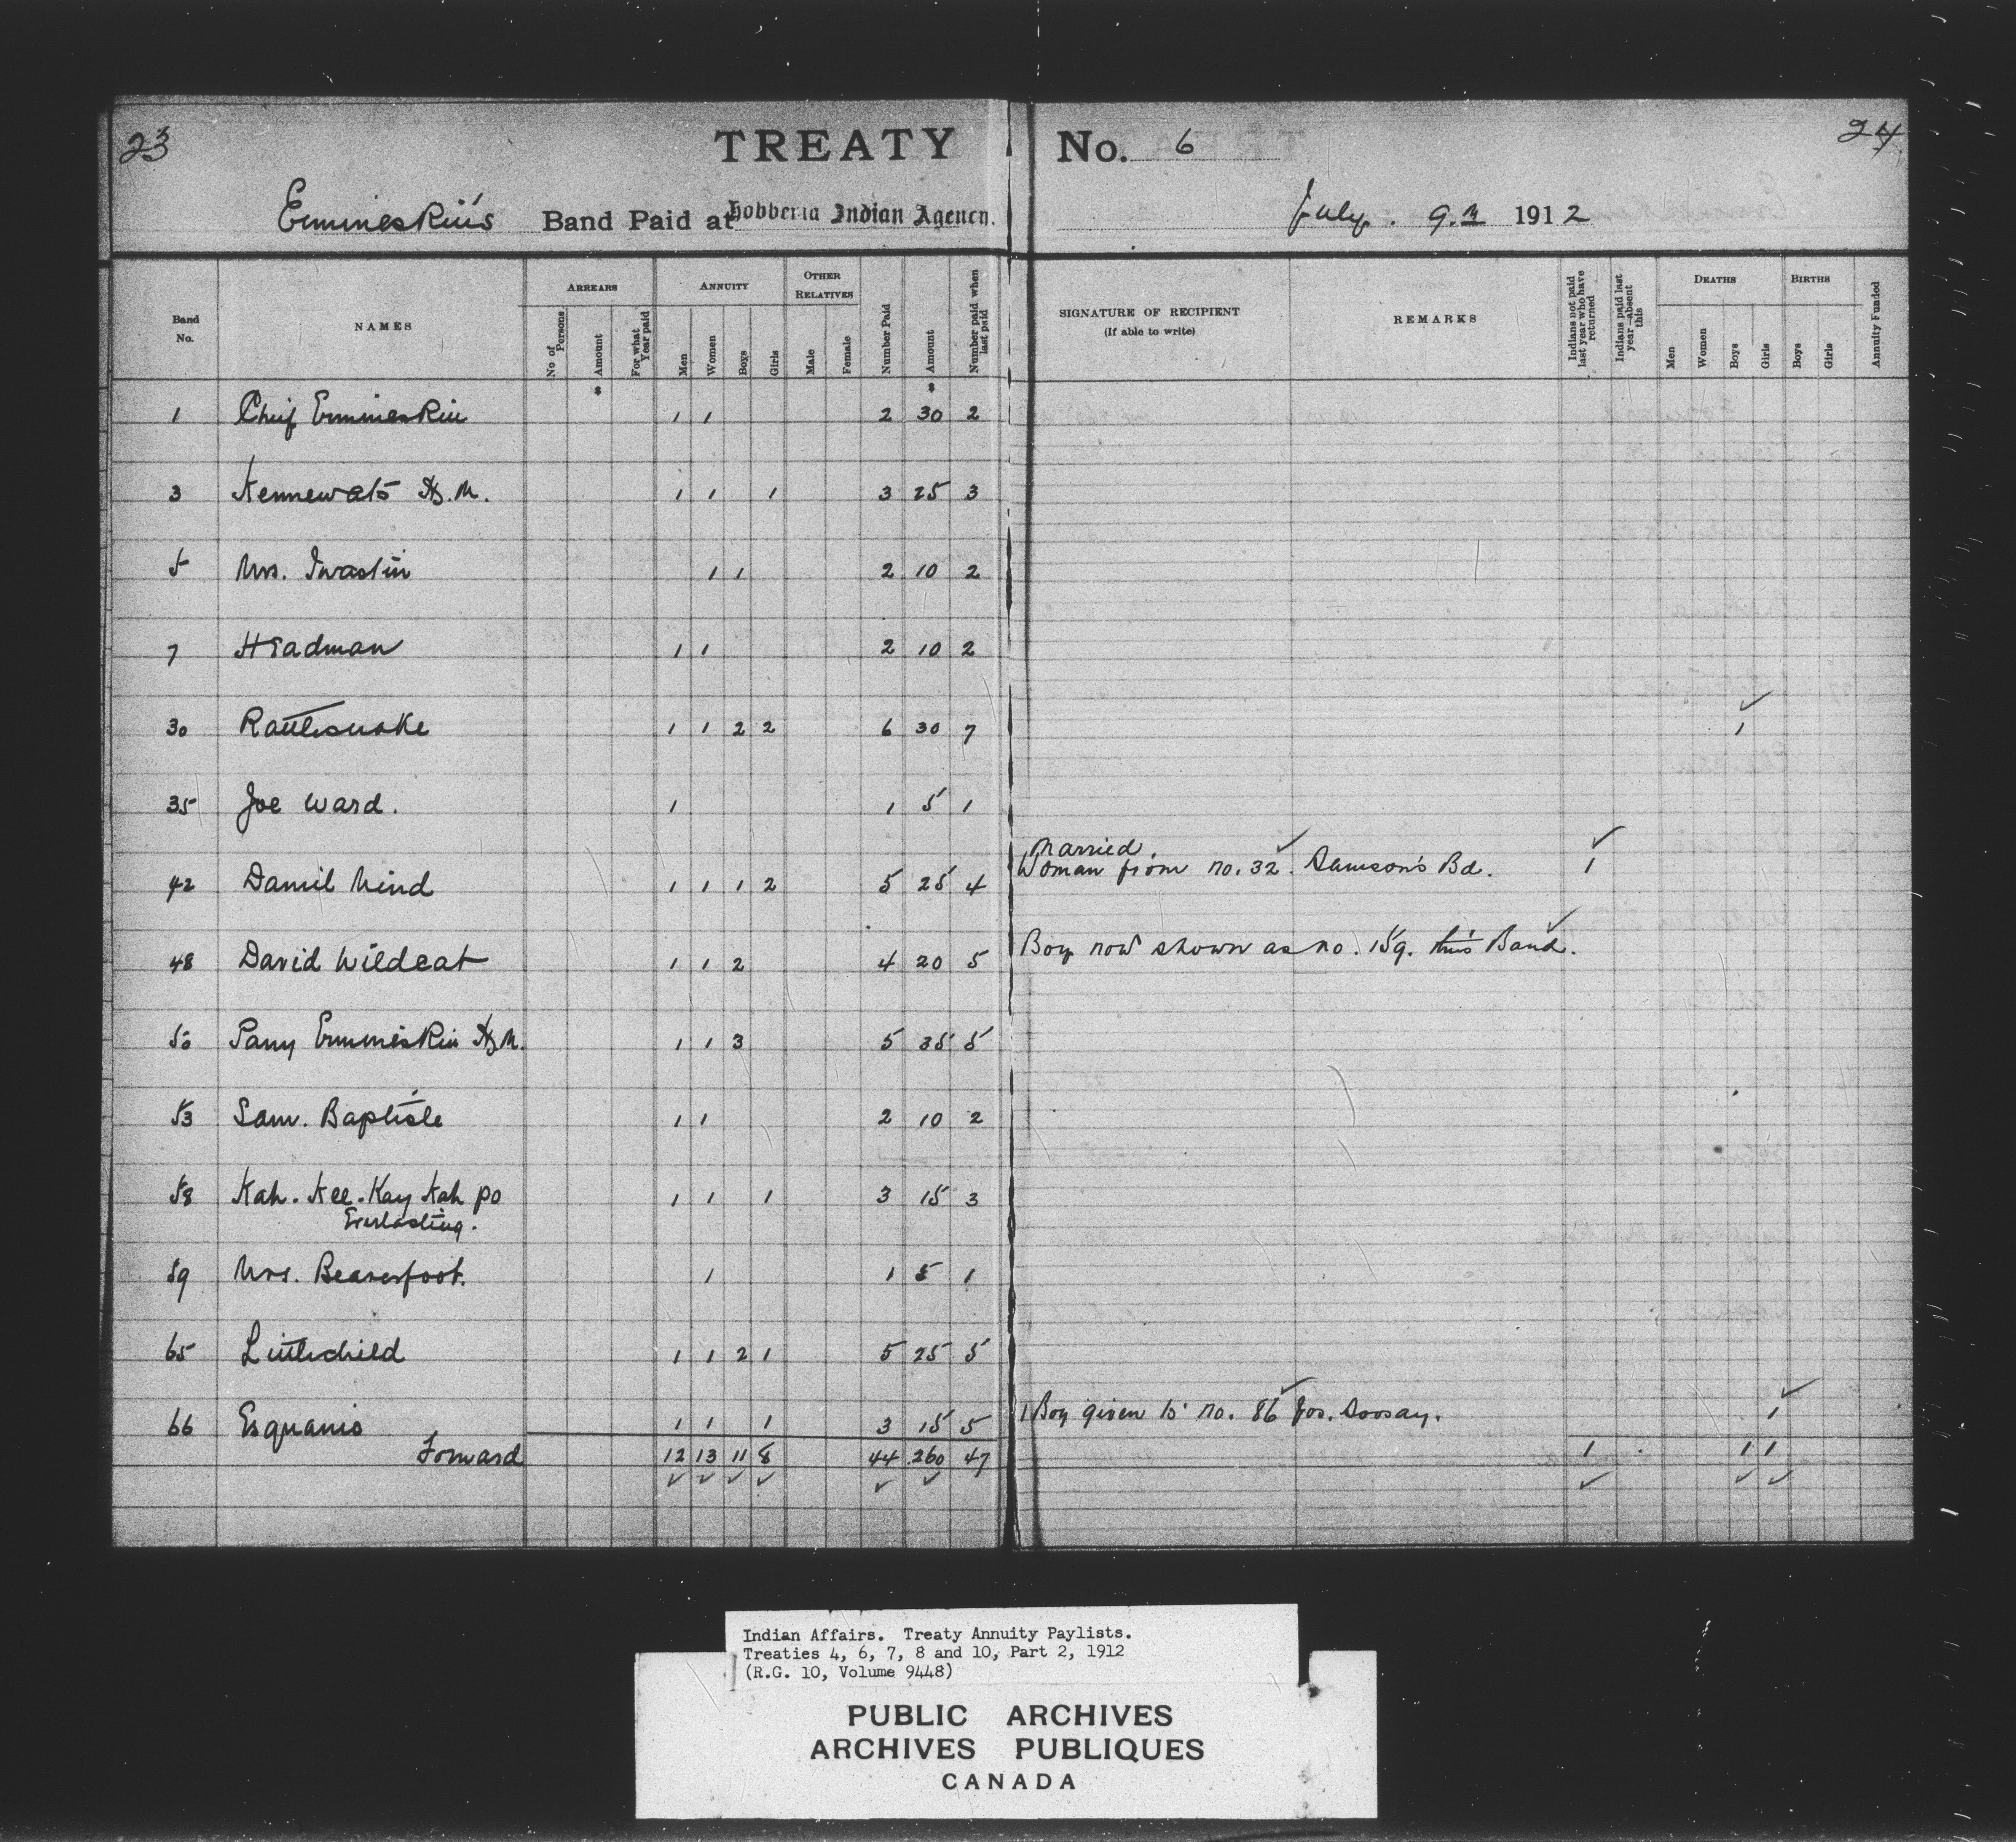 23
TREATY No. 6
24
Ermineskin's Band Paid at Hobbema Indian Agency. July. 9. 1912
Band No.
NAMES
ARREARS
No of Persons
Amount
For what Year paid
ANNUITY
Men
Women
Boys
Girls
OTHER RELATIVES
Male
Female
Number Paid
Amount
Number paid when last paid
SIGNATURE OF RECIPIENT
(If able to write)
REMARKS
Indians not paid last year who have returned
Indians paid last year—absent this
DEATHS
Men
Women
Boys
Girls
BIRTHS
Boys
Girls
Annuity Funded
$ $
1 Chief Ermineskin 1 1 2 30 2
3 Kennewats H.M. 1 1 1 3 25 3
5 Mrs. Iwastin 1 1 2 10 2
7 Headman 1 1 2 10 2
30 Rattlesnake 1 1 2 2 6 30 7 1
35 Joe Ward. 1 1 5 1
Married.
42 Daniel Mind 1 1 1 2 5 25 4 Woman from no. 32. Samson's Bd. 1
48 David Wildcat 1 1 2 4 20 5 Boy now shown as no. 159. this Band.
50 Ermineskin H.M. 1 1 3 5 35 5
53 Sam. Baptiste 1 1 2 10 2
58 Kah. Kee. Kay Kah po 1 1 1 3 15 3
Everlasting.
59 Mrs. Beaverfoot. 1 1 5 1
65 Littlechild 1 1 2 1 5 25 5
66 Esquanis 1 1 1 3 15 5 1 Boy given to no. 86 Jos. Soosay. 1
Forward 12 13 11 8 44 260 47 1 1 1
Indian Affairs. Treaty Annuity Paylists.
Treaties 4, 6, 7, 8 and 10, Part 2, 1912
(R.G. 10, Volume 9448)
PUBLIC ARCHIVES
ARCHIVES PUBLIQUES
CANADA